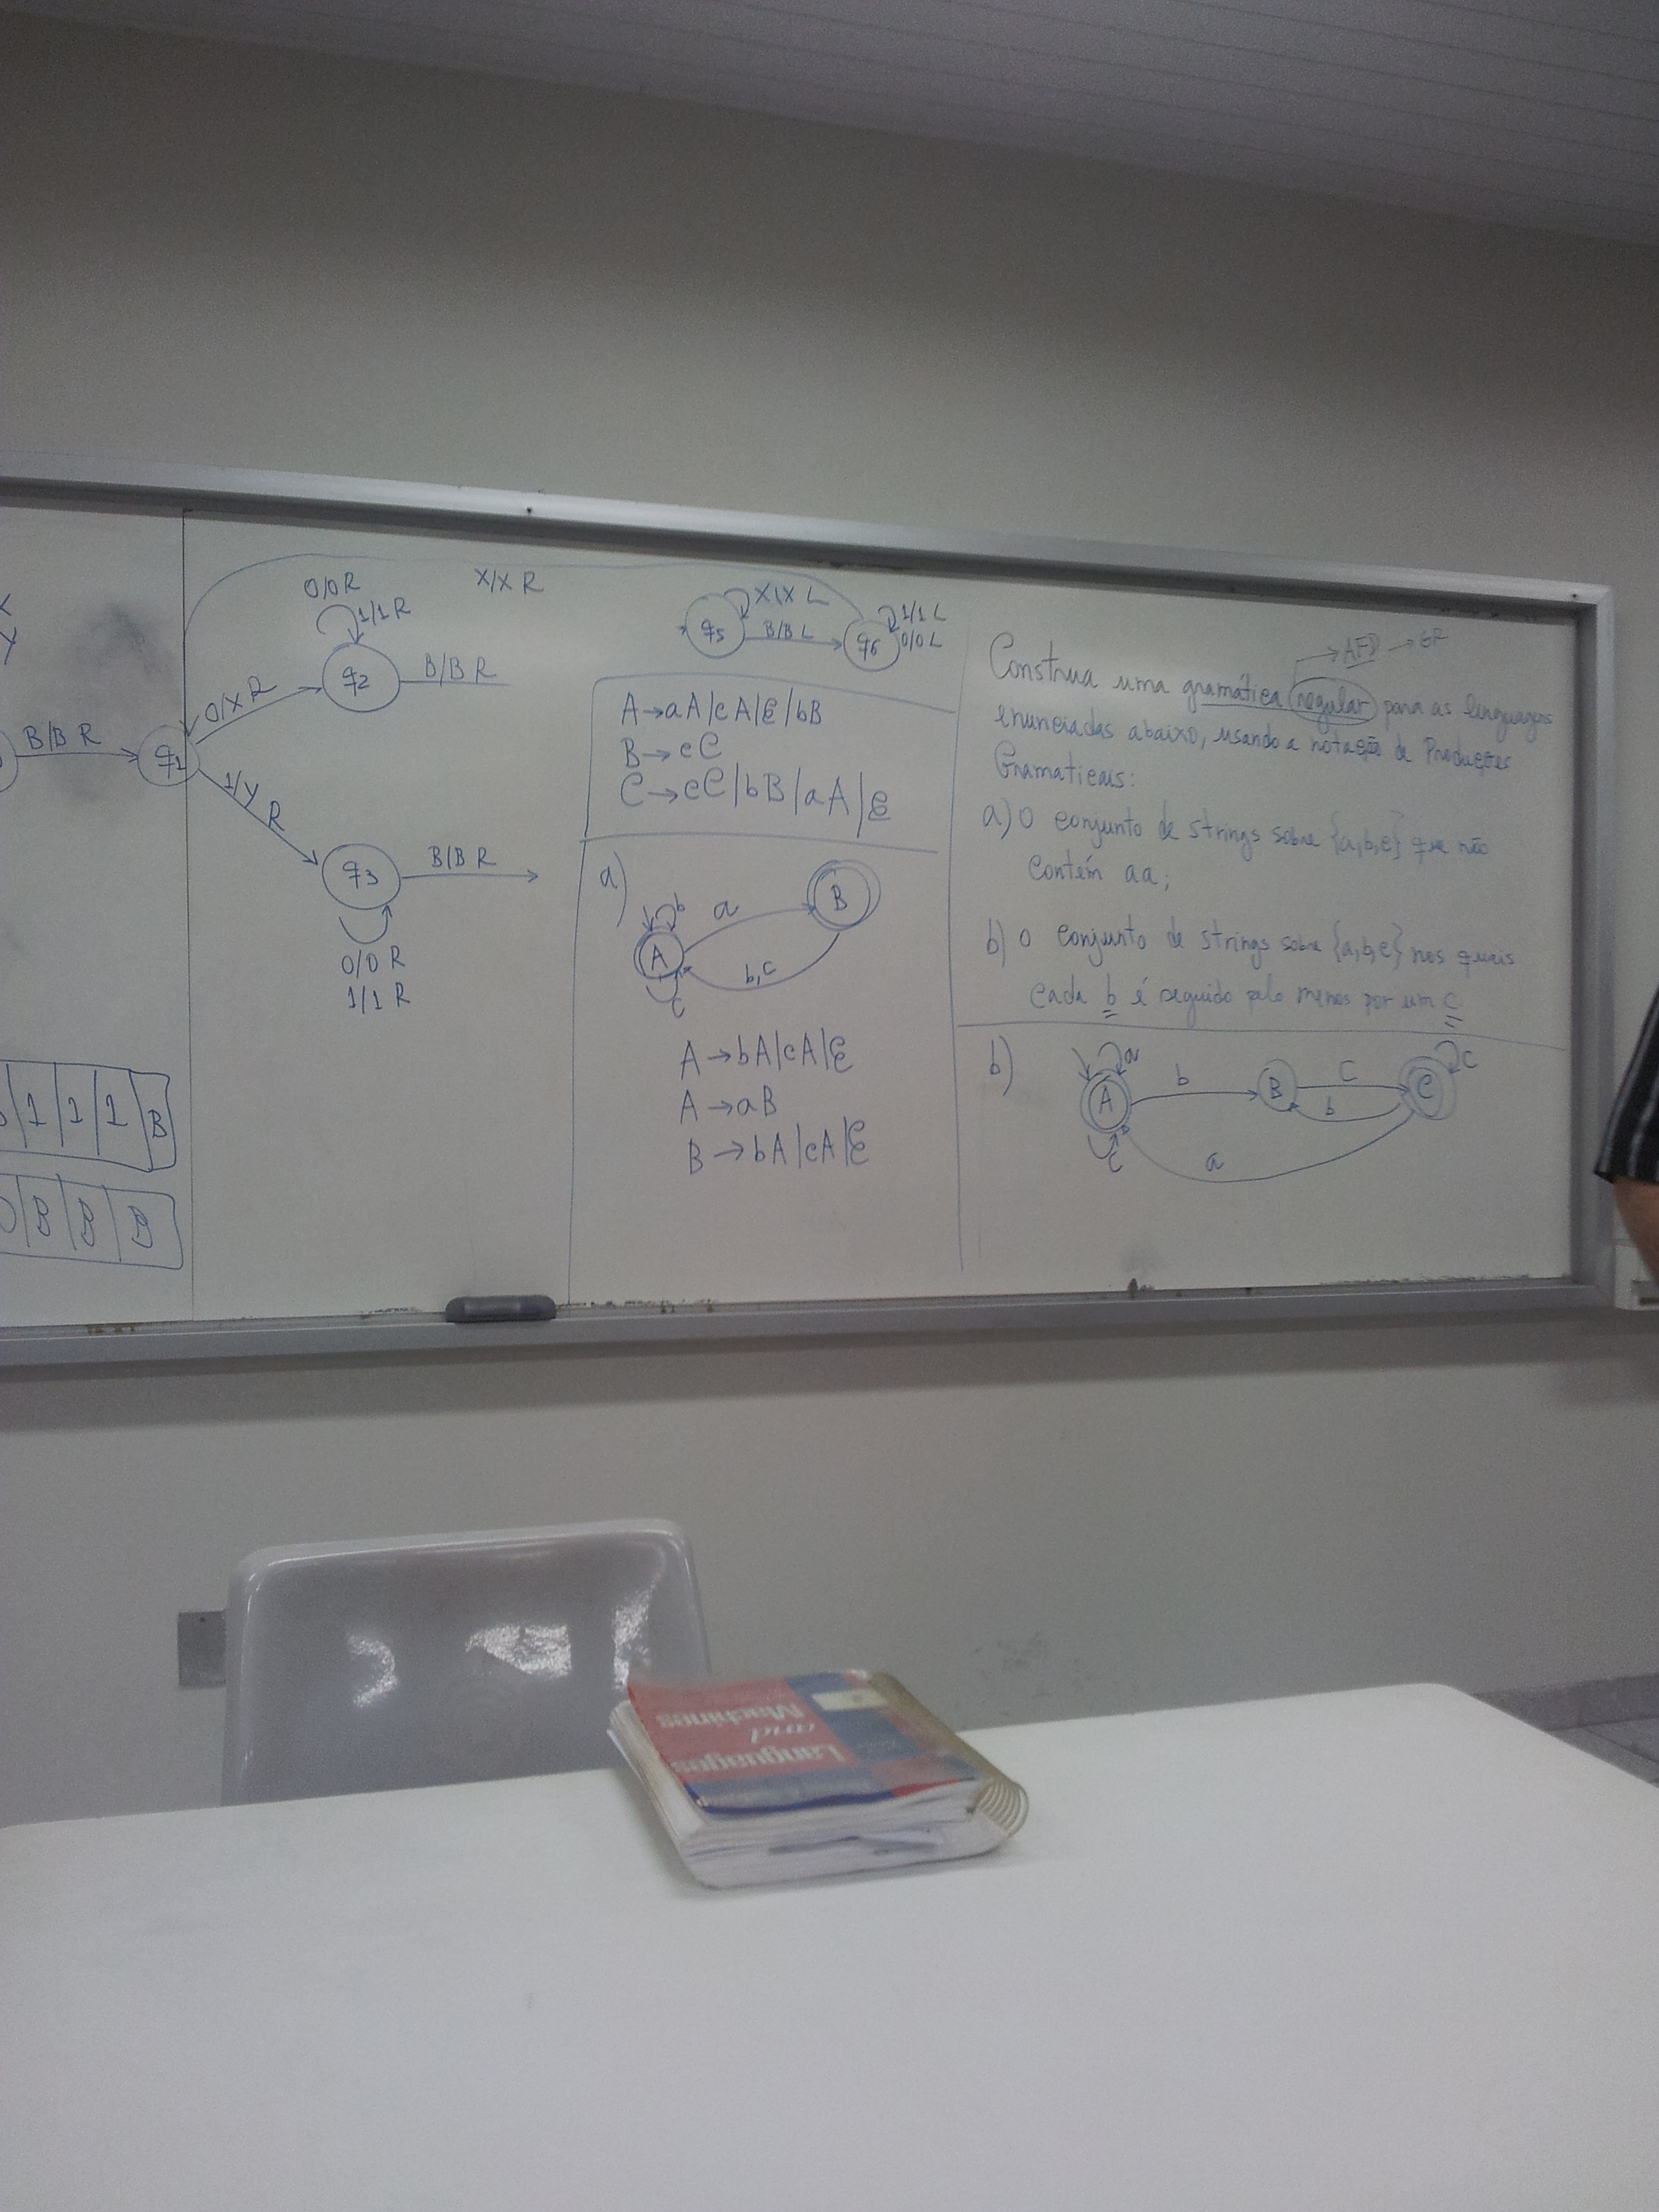 X
Y
B/B R
q1
0/X R
1/Y R
0/0 R
1/1 R
q2
B/B R
q3
B/B R
0/0 R
1/1 R
X/X R
q5
X/X L
B/B L
q6
1/1 L
0/0 L
1 1 1 B
B B B
A→aA|cA|ε|bB
B→cC
C→cC|bB|aA|ε
a)
A
b
a
B
b,c
c
A→bA|cA|ε
A→aB
B→bA|cA|ε
→AFD→GR
Construa uma gramática regular para as linguagens
enunciadas abaixo, usando a notação de Produções
Gramaticais:
a) O conjunto de strings sobre {a,b,c} que não
contém aa;
b) O conjunto de strings sobre {a,b,c} nos quais
cada b é seguido pelo menos por um c
b)
A
a
b
B
c
b
C
c
c
a
Languages
and
Machines